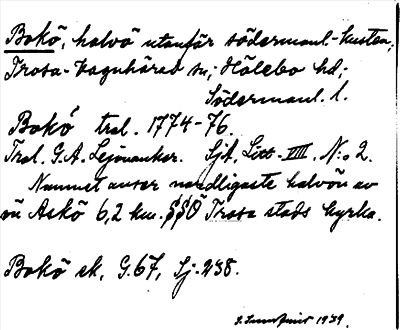 Bokö, halvö utanför södermanl. kusten,
Trosa-Vagnhärad sn; Hölebo hd;
Södermanl. l.
Bokö tral. 1774-76.
Tral. G.A. Lejonanker. Sjk, Litt. VIII. N:o 2.
Namnet avser nordligaste halvön av
ön Askö 6,2 km. SSÖ Trosa stads kyrka.
Bokö ek, G.67, Sj. 238.
1939.